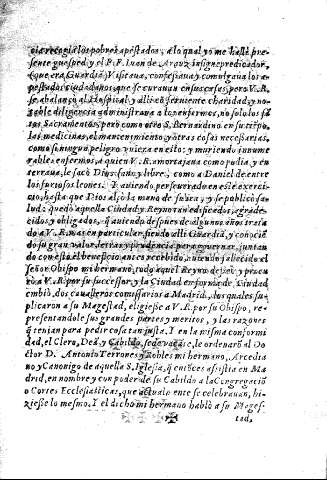 cia recogiā los pobres apestados, a lo qual yo me hallè pre-
sente guesped y el P. F. Iuan de Arauz insigne predicador,
(que era Guardiā) Visitaua, confessaua, y comulgaua los a-
pestados ciudadanos, que se curauan en sus casas, pero V. R.
se abalançò al Hospital, y allì cō feruiente charidad, y no-
table diligencia administraua a los enfermos, no solo los sā-
tos Sacramentos, pero como otro S. Bernardino en su tiēpo,
las medicinas, el mantenimiento, y otras cosas necessarias,
como si ningun peligro vuiera en esto: y muriendo innume
rables enfermos, a quien V. R. amortajaua como podia, y en
terraua, le sacò Dios sano, y libre, como a Daniel de entre
los furiosos leones. Y auiendo perseuerado en este exerci-
cio, hasta que Dios alçò la mano de su ira, y se publicò sa-
lud: quedò aquella Ciudad y Reyno tan edificados, agrade-
cidos, y obligados, q̃ auiendo despues de algunos años trata
do a V. R. mas en particular, siendo alli Guardiā, y conoci-
do su gran valor, letras, y prudencia para gouernar, juntan
do con esto el beneficio antes recebido, auiendo fallecido el
Señor Obispo mi hermano, todo aquel Reyno pidiò, y procu
rò a V. R. por su successor, y la Ciudad en forma de Ciudad
embiò dos caualleros comissarios a Madrid, los quales su-
plicaron a su Magestad, eligiesse a V. R. por su Obispo, re-
presentandole sus grandes partes y meritos, y las razones
q̃ tenian para pedir cosa tan justa. Y en la misma conformi
dad, el Clero, Deā, y Cabildo, sede vacāte, le ordenarō al Do
ctor D. Antonio Terrones y Robles mi hermano, Arcedia
no y Canonigo de aquella S. Iglesia, q̃ entōces assistia en Ma
drid, en nombre y con poder de su Cabildo a la Congregaciō
o Cortes Ecclesiasticas, que actualmente se celebrauan, hi-
ziesse lo mesmo. Y el dicho mi hermano hablò a su Mages-
tad,